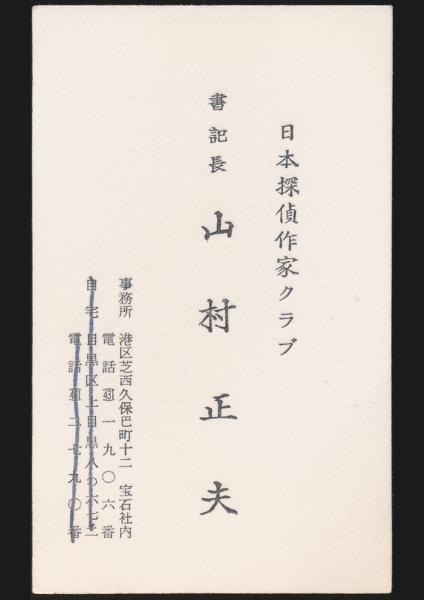 日本探偵作家クラブ
書記長 山村正夫
事務所 港区芝西久保巴町十二 宝石社内
電話 一九〇六番
自宅 目黒区上目黒八の六七二
電話 二七九〇番